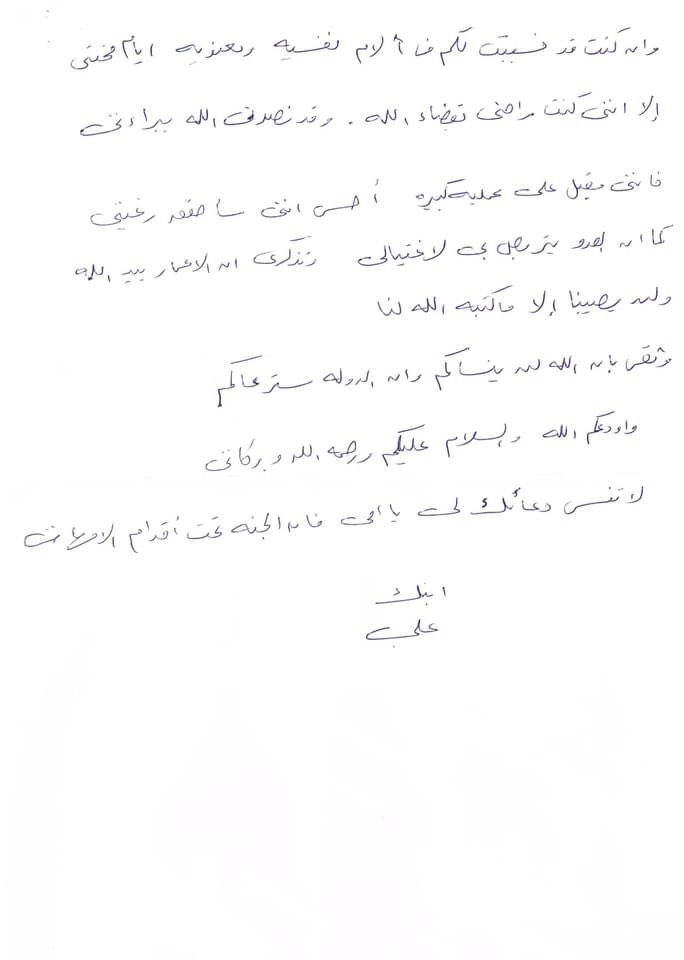 وان كنت قد تسببت لكم في ألام نفسيه ومعنويه ايام محنتي
إلا انني كنت راضي بقضاء الله . وقد نصرني الله ببراءتي
فانني مقبل على عمليه كبيره أحس انني سأحقق رغبتي
كما ان العدو يتربص بي لاغتيالي وتذكري ان الاعمار بيد الله
ولن يصيبنا إلا ماكتبه الله لنا
وثقي بان الله لن ينساكم وان الدوله سترعاكم
واودعكم الله والسلام عليكم ورحمه الله وبركاته
لا تنسي دعائك لي يا امي فان الجنه تحت أقدام الامهات
ابنك
علي